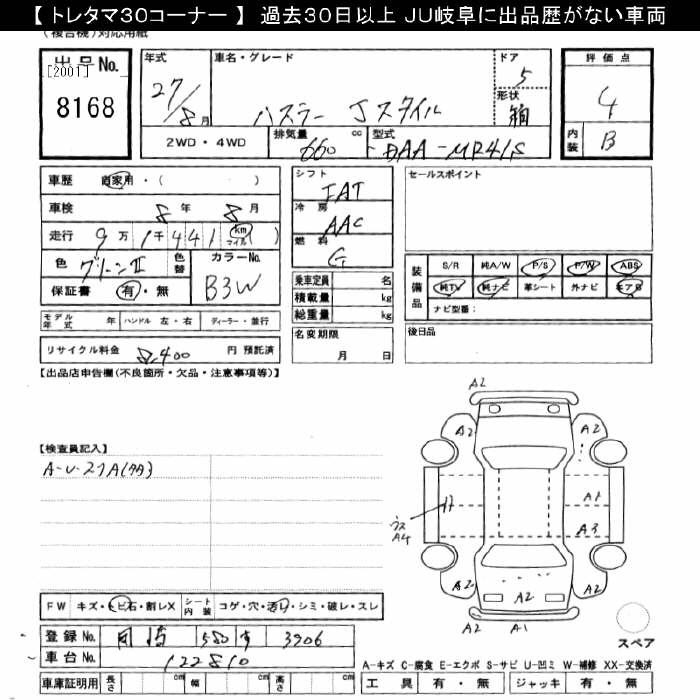 【 トレタマ30コーナー 】 過去30日以上 JU岐阜に出品歴がない車両
(複合機)対応用紙
出品No.
[2001]
8168
年式
27/8月
車名・グレード
ハスラー Jスタイル
ドア
5
形状
箱
評価点
4
内装
B
2WD・4WD
排気量
660 cc
型式
DAA-MR41S
車歴 自家用・( )
車検 8年 8月
走行 9万1千441 km マイル ( )
色 グリーンⅡ
色替
カラーNo.
B3W
保証書 有・無
シフト
IAT
冷房
AAC
燃料
G
乗車定員 名
積載量 kg
総重量 kg
セールスポイント
装備品
S/R 純A/W P/S P/W ABS
純TV 純ナビ 革シート 外ナビ エアB
ナビ型番:
モデル年式 年 ハンドル 左・右 ディーラー・並行
名変期限
月 日
後日品
リサイクル料金 8,400 円 預託済
【出品店申告欄(不良箇所・欠品・注意事項等)】
【検査員記入】
A-U-2
A2
A2
A2
A1
A3
A4
A2
A2
A2
A2
A2
A1
スペア
FW キズ・ヒビ石・割レX
シート内装 コゲ・穴・汚レ・シミ・破レ・スレ
登録No. 岡崎 580 す 3906
車台No. 122810
車庫証明用 長さ cm 幅 cm 高さ cm
A-キズ C-腐食 E-エクボ S-サビ U-凹ミ W-補修 XX-交換済
工具 有・無 ジャッキ 有・無